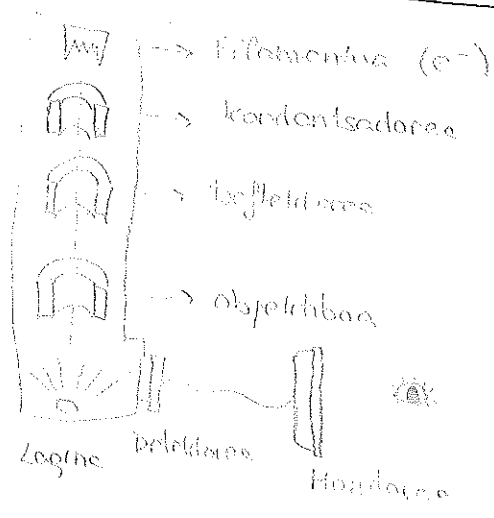 Filamentua (e⁻)
kondentsadorea
deflektorea
objektiboa
Lagina
Detektorea
Monitorea